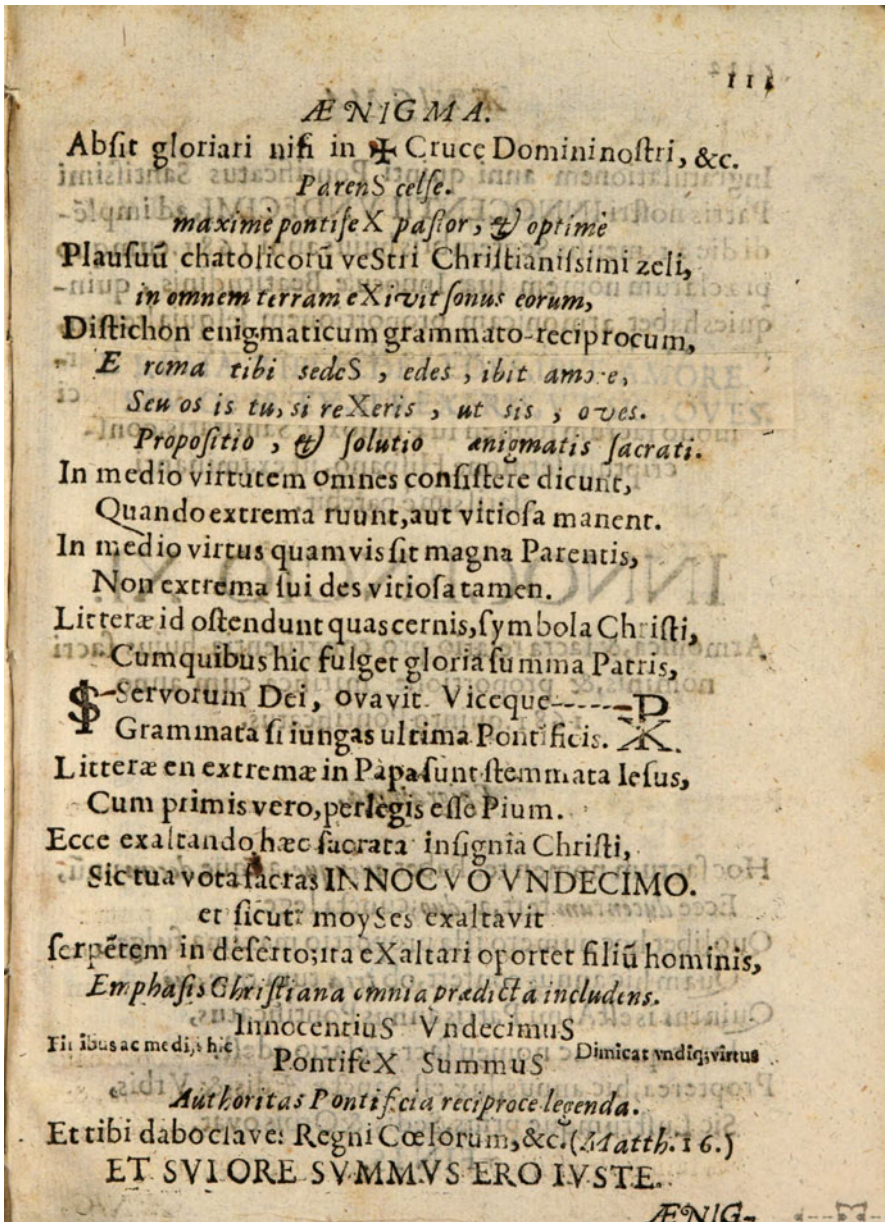 115
ÆNIGMA.
Abſit gloriari niſi in ✠ Cruce Domini noſtri, &c.
ParenS celſe.
maximè pontifeX paſtor, & optimè
Plauſuū chatolicorū veStri Chriſtianiſsimi zeli,
in omnem terram eXivit ſonus eorum,
Diſtichon enigmaticum grammato-reciprocum,
E roma tibi sedeS , edes , ibit amore,
Seu os is tu, si reXeris , ut sis , oves.
Propoſitio , & ſolutio ænigmatis ſacrati.
In medio virtutem omnes conſiſtere dicunt,
Quando extrema ruunt, aut vitioſa manent.
In medio virtus quamvis ſit magna Parentis,
Non extrema ſui des vitioſa tamen.
Litteræ id oſtendunt quas cernis, ſymbola Chriſti,
Cum quibus hic fulget gloria ſumma Patris,
Servorum Dei, ovavit Viceque------P
Grammata ſi iungas ultima Pontificis. X.
Litteræ en extremæ in Papa ſunt ſtemmata Ieſus,
Cum primis vero, perlegis eſſe Pium.
Ecce exaltando hæc ſacrata inſignia Chriſti,
Sic tua vota ſacras INNOCVO VNDECIMO.
et ſicut moySes exaltavit
ſerpētem in deſerto; ita eXaltari oportet filiū hominis,
Emphaſis Chriſtiana omnia prædicta includens.
InnocentiuS VndecimuS
ac medijs hic
PontifeX SummuS Dimicat vndiq; virtus
Authoritas Pontificia reciproce legenda.
Et tibi dabo claves Regni Cœlorum, &c. (Matth. 16.)
ET SVIORE SVMMVS ERO IVSTE.
ÆNIG-